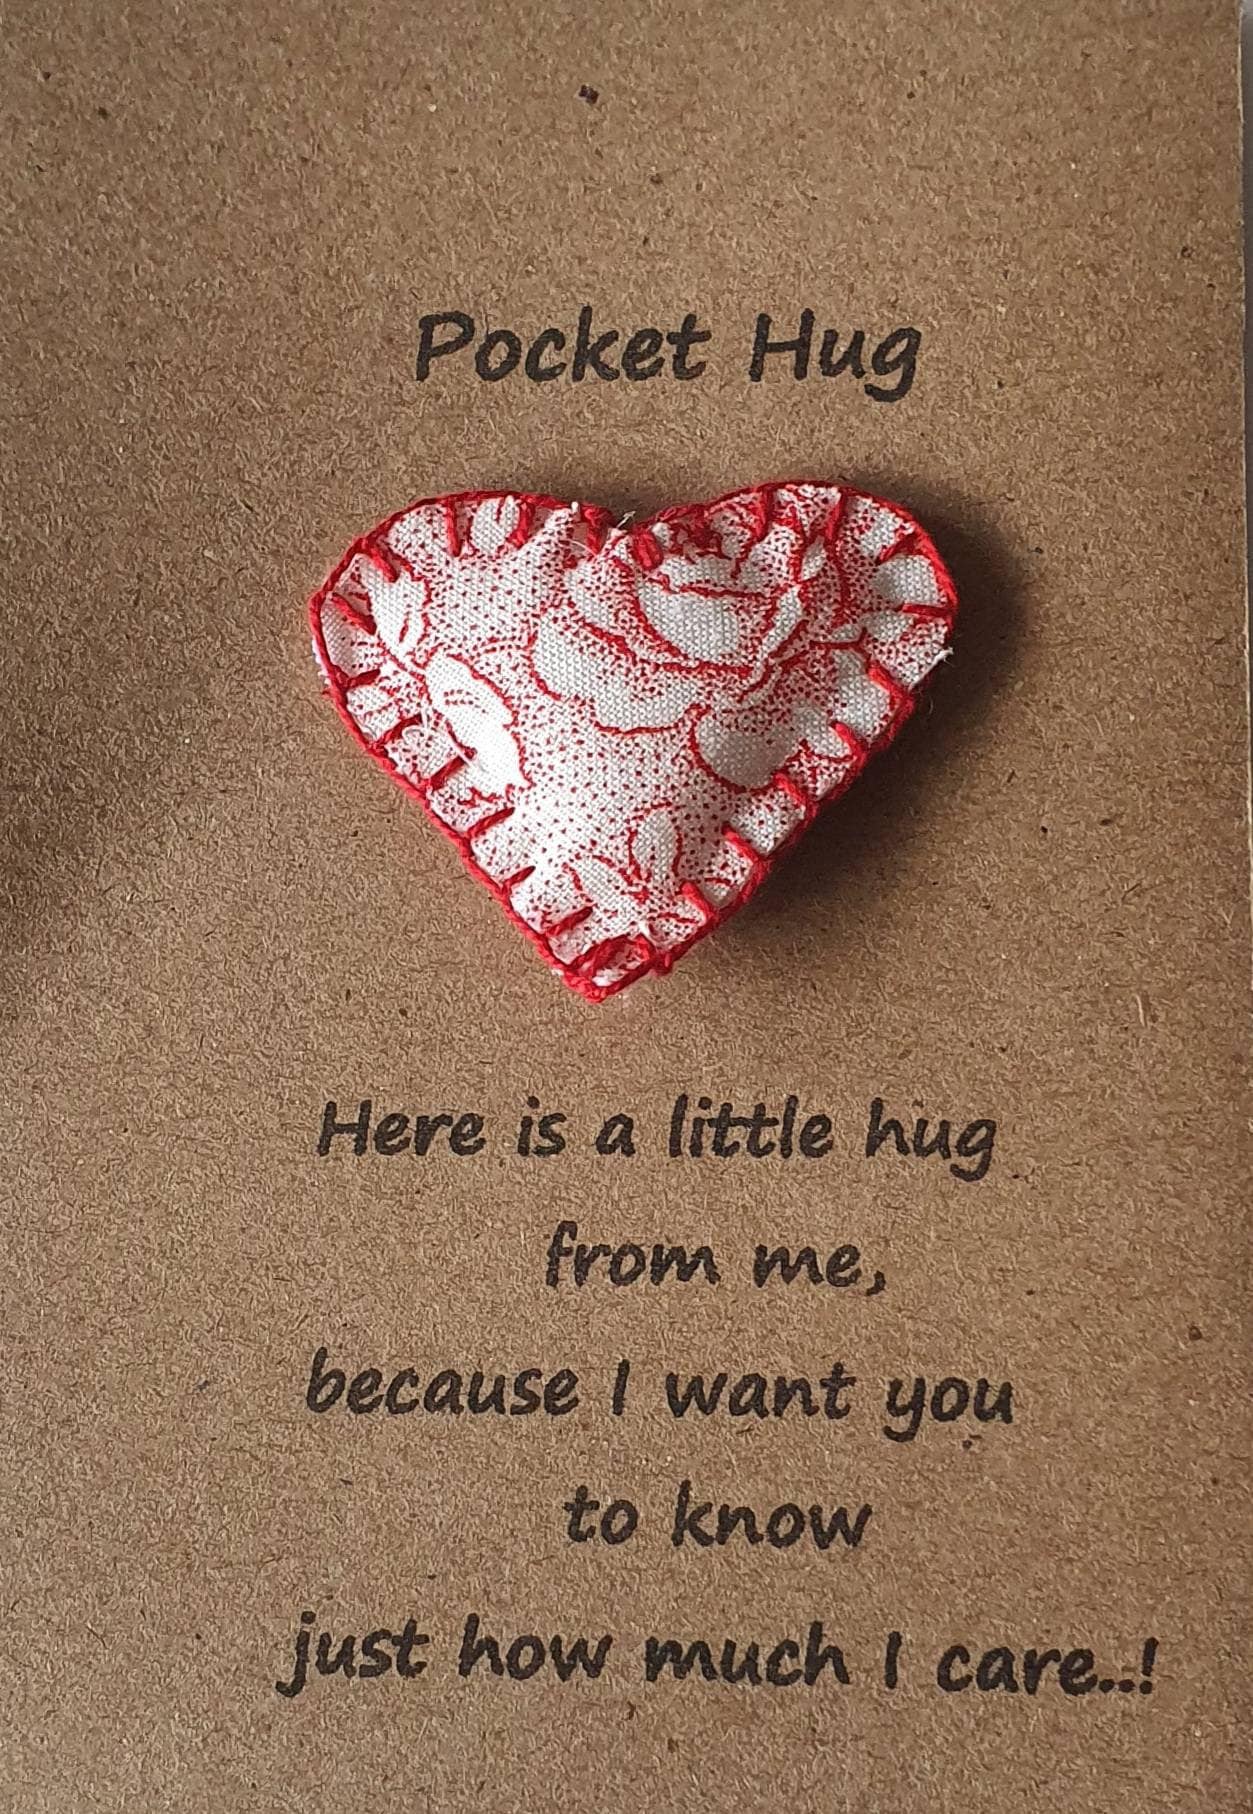 Pocket Hug
Here is a little hug
from me,
because I want you
to know
just how much I care..!